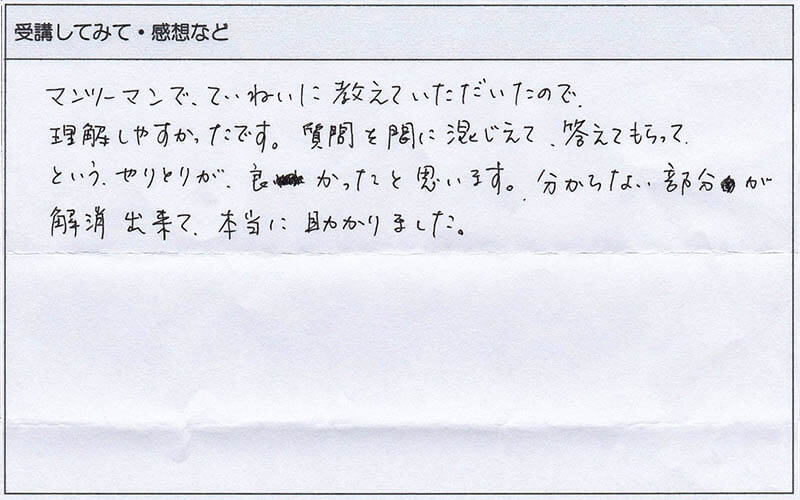 受講してみて・感想など
マンツーマンで、ていねいに教えていただいたので、
理解しやすかったです。質問を間に混じえて、答えてもらって、
という、やりとりが、良かったと思います。分からない部分が
解消出来て、本当に助かりました。